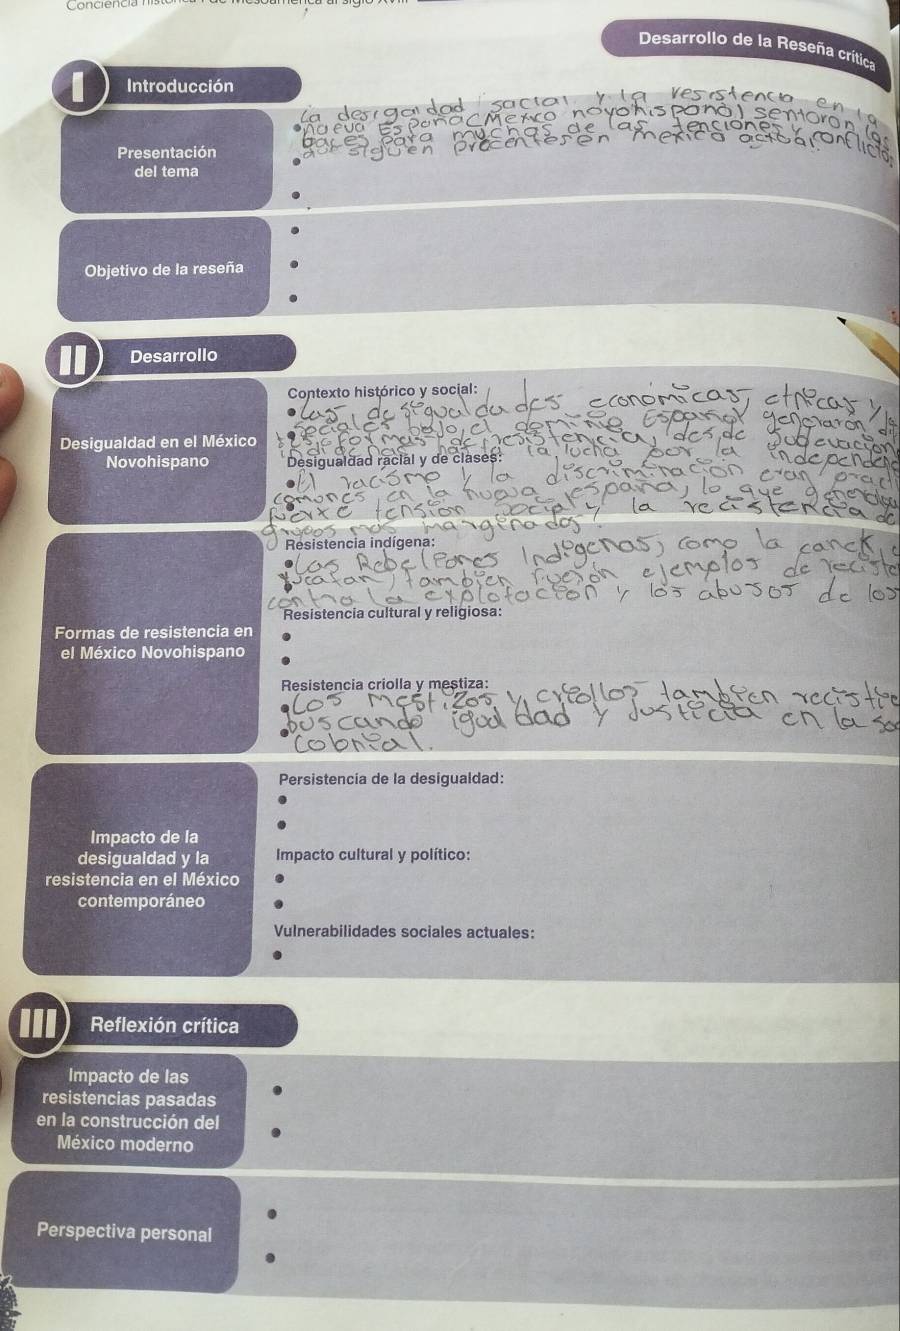 Desarrollo de la Reseña crítica
I Introducción
Presentación
del tema
La desigaldad sacial y la resistencia en la
nueva España (Mexico novohispono) semloron las
bases para muchas de las tenciones y conflictos
que siguen precentes en mexico actual.
Objetivo de la reseña
II Desarrollo
Desigualdad en el México
Novohispano
Contexto histórico y social:
Las, desigualdades económicas, etnicas y
sociales bajo el dominio Español generaron
formas de resistencia, desde
la lucha por la
Desigualdad racial y de clases:
El racismo y la discriminación eran
comunes en la nueva españa, lo que
tensión social y la recistencia de
grupos mas marginados
Formas de resistencia en
el México Novohispano
Resistencia indígena:
Las Rebeliones Indigenas, como la
yucatan, tambien fueron ejemplos de
contra la explotacion y los abusos de los
Resistencia cultural y religiosa:
Resistencia criolla y mestiza:
Los mestizos y criollos tambien
buscando igualdad y justicia en la
colonial.
Impacto de la
desigualdad y la
resistencia en el México
contemporáneo
Persistencia de la desigualdad:
Impacto cultural y político:
Vulnerabilidades sociales actuales:
III Reflexión crítica
Impacto de las
resistencias pasadas
en la construcción del
México moderno
Perspectiva personal